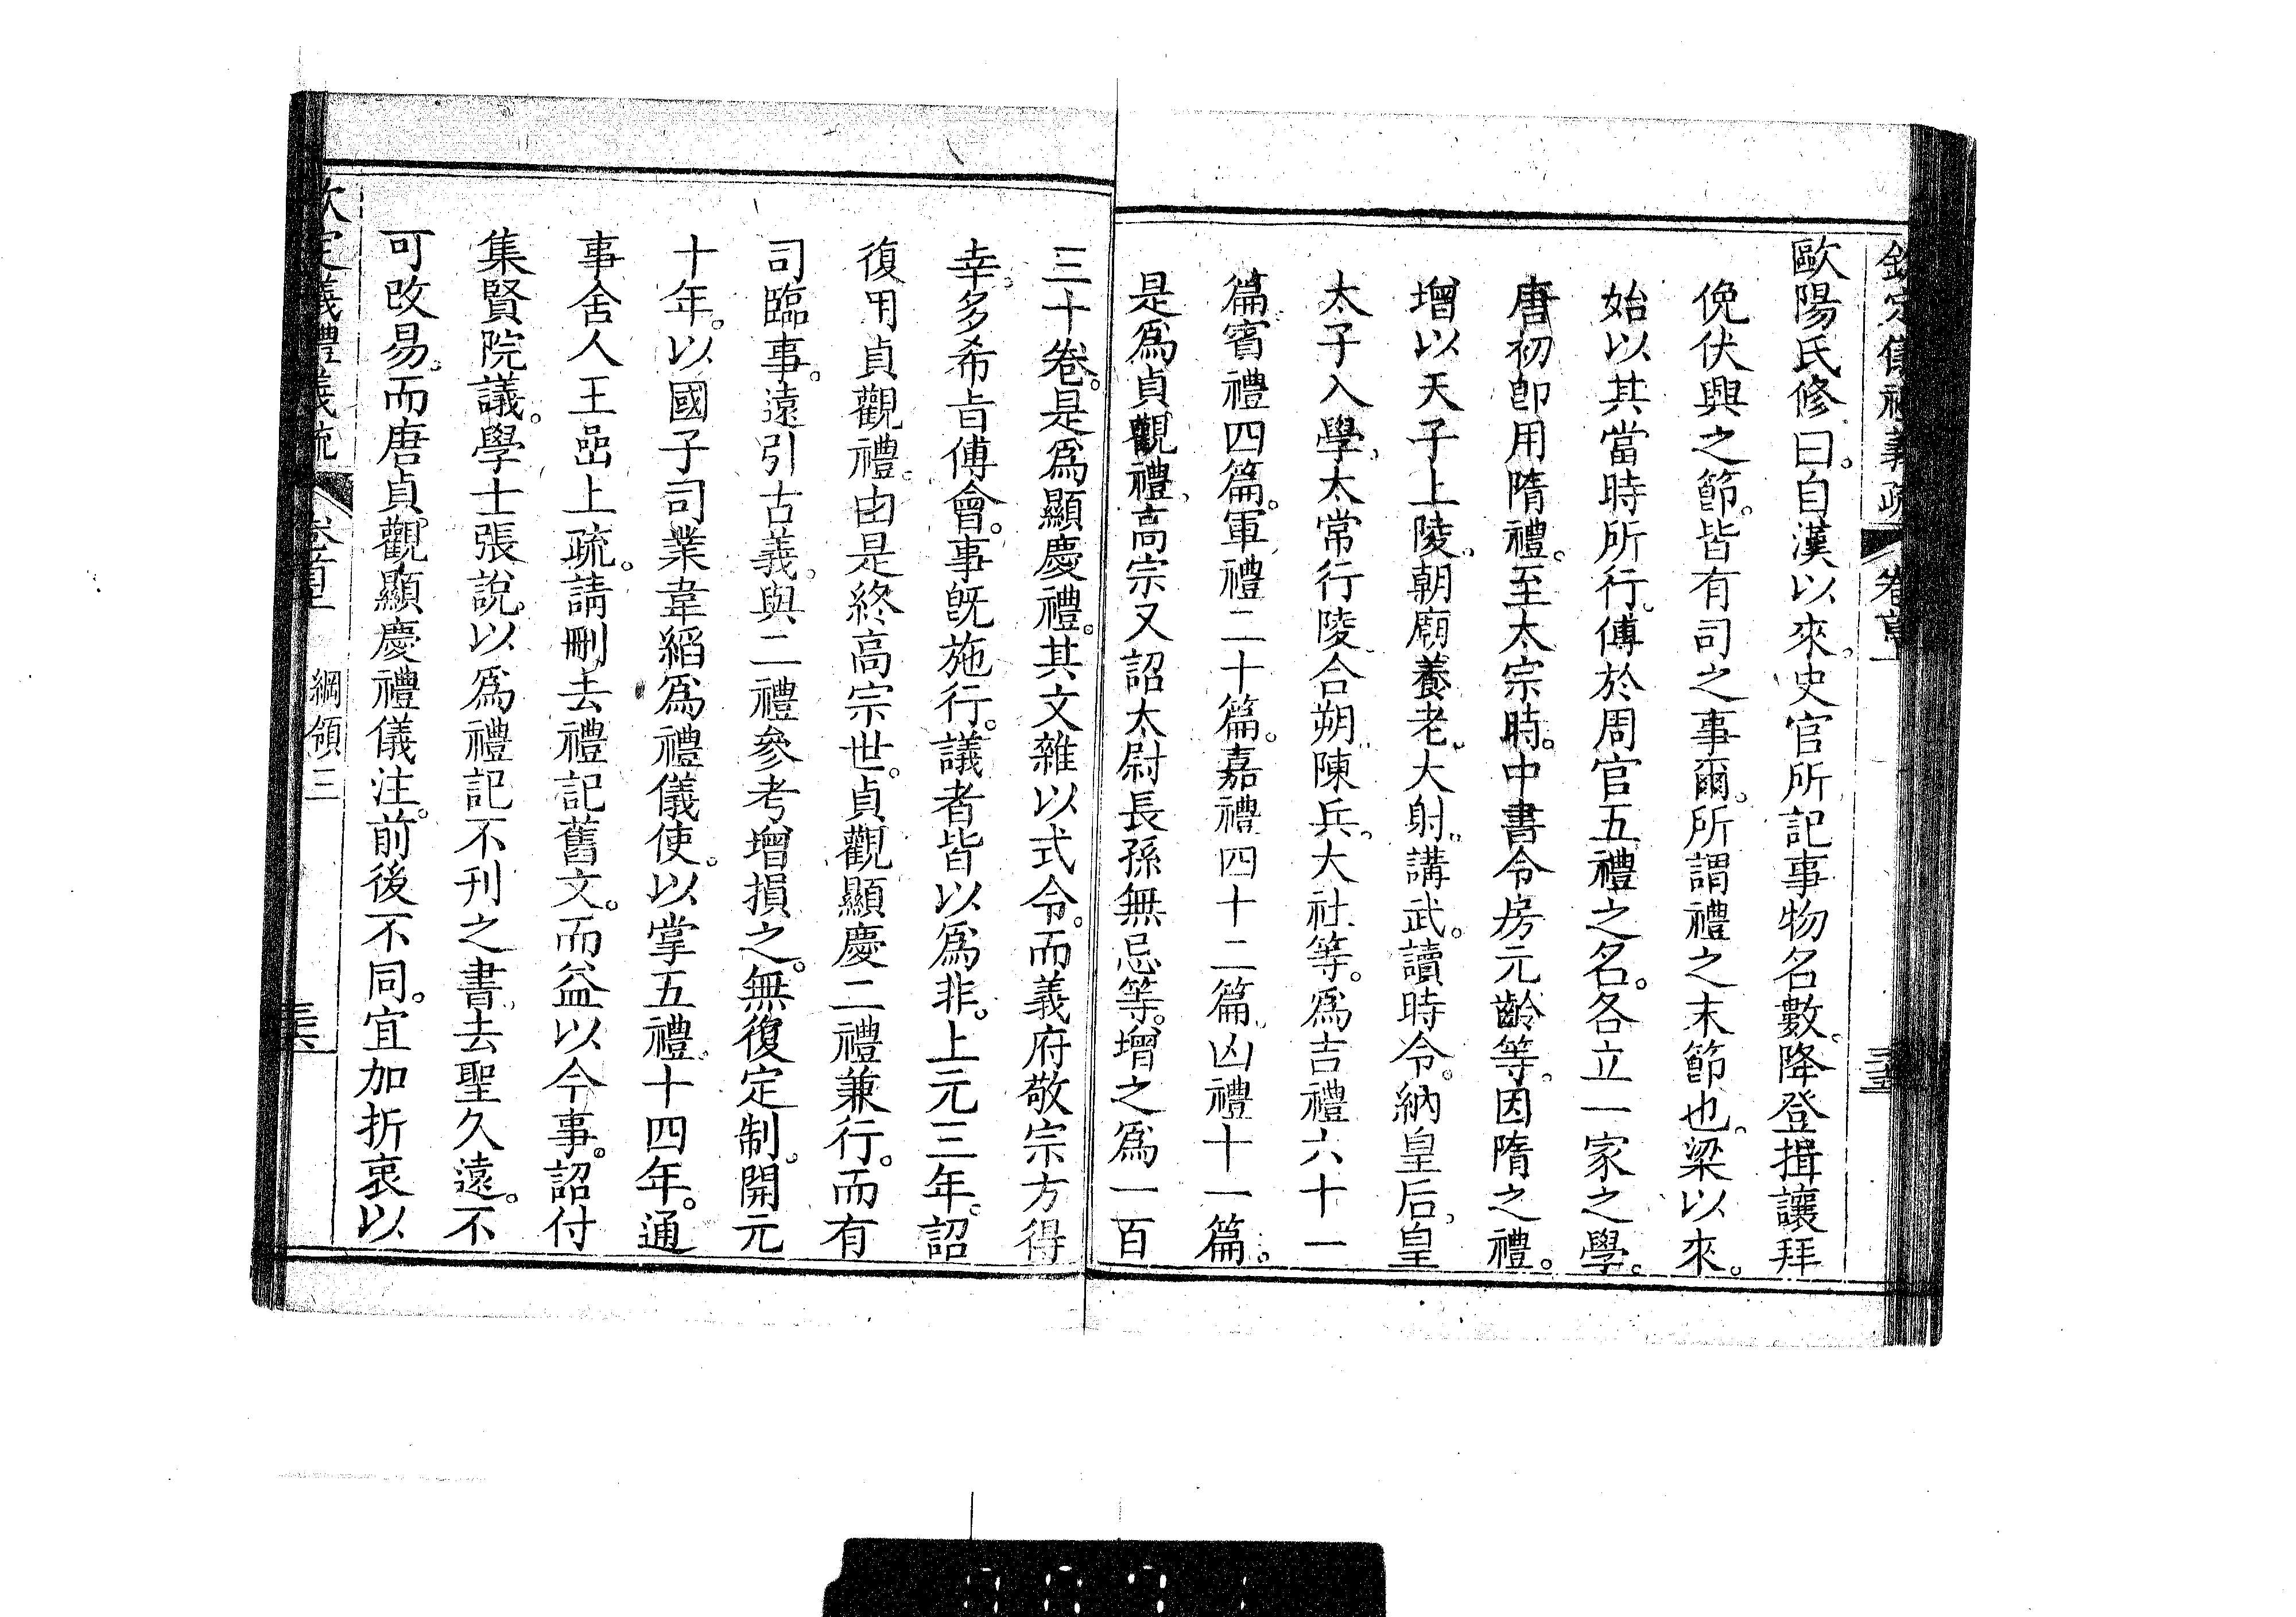 欽定儀禮義疏 卷首
歐陽氏修曰。自漢以來。史官所記事物名數。降登揖讓拜
俛伏興之節。皆有司之事爾。所謂禮之末節也。梁以來。
始以其當時所行。傅於周官五禮之名。各立一家之學。
唐初卽用隋禮。至太宗時。中書令房元齡等。因隋之禮。
增以天子上陵。朝廟。養老。大射。講武。讀時令。納皇后。皇
太子入學。太常行陵。合朔。陳兵。大社等。爲吉禮六十一
篇。賓禮四篇。軍禮二十篇。嘉禮四十二篇。凶禮十一篇。
是爲貞觀禮。高宗又詔太尉長孫無忌等。增之爲一百
三十卷。是爲顯慶禮。其文雜以式令。而義府敬宗方得
幸。多希旨傅會。事旣施行。議者皆以爲非。上元三年。詔
復用貞觀禮。由是終高宗世。貞觀顯慶二禮兼行。而有
司臨事。遠引古義。與二禮參考增損之。無復定制。開元
十年。以國子司業韋縚爲禮儀使。以掌五禮。十四年。通
事舍人王嵒上疏。請刪去禮記舊文。而益以今事。詔付
集賢院議。學士張說。以爲禮記不刊之書。去聖久遠。不
可改易。而唐貞觀顯慶禮儀注。前後不同。宜加折衷。以
欽定儀禮義疏 卷首上 綱領三